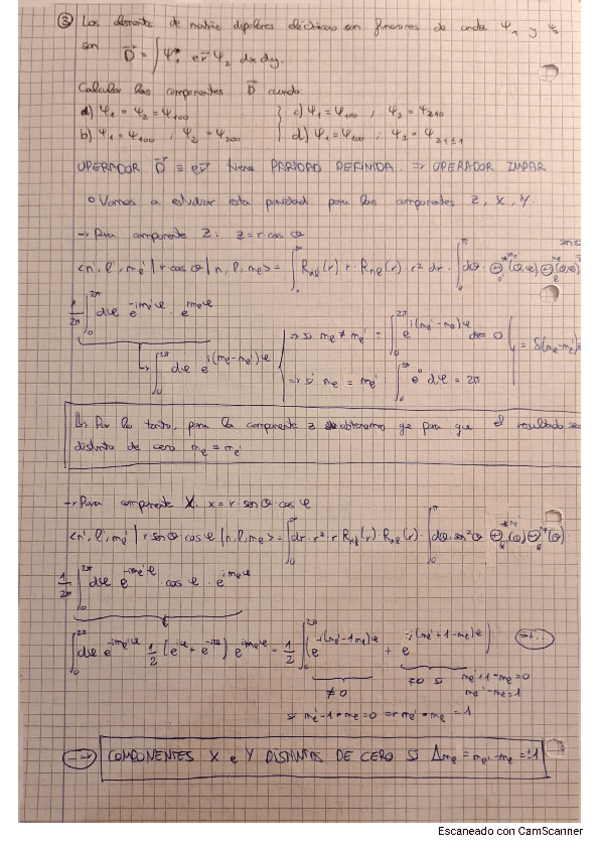 ③ Los elementos de matriz dipolares eléctricos son funciones de onda Ψ₁ y Ψ₂
son D⃗ = ∫ Ψ₁* e r⃗ Ψ₂ dx dy.
Calcular las componentes D⃗ cuando.
a) Ψ₁ = Ψ₂ = Ψ₁₀₀ c) Ψ₁ = Ψ₁₀₀ ; Ψ₂ = Ψ₂₁₀
b) Ψ₁ = Ψ₁₀₀ ; Ψ₂ = Ψ₂₀₀ d) Ψ₁ = Ψ₁₀₀ ; Ψ₂ = Ψ₂₁±₁
OPERADOR D⃗ ≡ e r⃗ tiene PARIDAD DEFINIDA. ⇒ OPERADOR IMPAR
○ Vamos a estudiar esta paridad para las componentes z, x, y.
→ Para componente z: z = r cos θ
<n', l', mℓ' | r cos θ | n, l, mℓ> = ∫₀^∞ Rₙℓ(r) r · Rₙℓ(r) · r² dr · ∫₀ dθ
1/2π ∫₀^2π dφ e^(-imℓ'φ) · e^(imℓφ)
→ si mℓ ≠ mℓ' = ∫₀^2π e^(i(mℓ'-mℓ)φ) dφ = 0
∫₀^2π dφ e^(i(mℓ-mℓ')φ)
→ si mℓ = mℓ' ∫₀^2π e⁰ dφ = 2π
= δ(mℓ-mℓ')
↳ Por lo tanto, para la componente z obtenemos qe para que el resultado sea
distinto de cero mℓ = mℓ'
→ Para componente X. x = r · senθ · cos φ
<n', l', mℓ' | r senθ · cos φ | n, l, mℓ> = ∫₀^∞ dr · r² r Rₙℓ(r) Rₙℓ(r) · ∫₀ dθ sen²θ
1/2π ∫₀^2π dφ e^(-imℓ'φ) · cos φ · e^(imℓφ)
∫₀^2π dφ e^(-imℓ'φ) 1/2 (e^(iφ) + e^(-iφ)) e^(imℓφ) = 1/2 ∫₀^2π (e^(-i(mℓ'-1-mℓ)φ) + e^(-i(mℓ'+1-mℓ)φ)) →...
≠0 ≠0 si mℓ'+1-mℓ=0
mℓ'-mℓ=1
si mℓ'-1-mℓ=0 ⇒ mℓ'-mℓ=1
→ COMPONENTES X e Y DISTINTAS DE CERO SI Δmℓ = mℓ'-mℓ = ±1
Escaneado con CamScanner